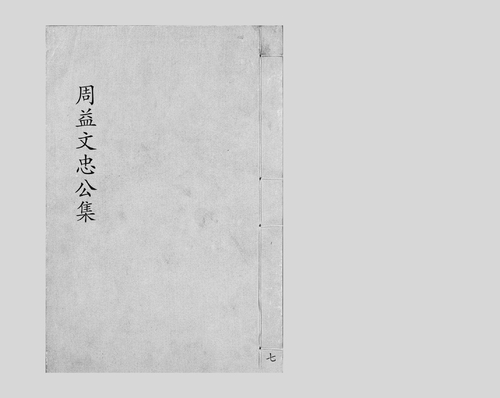 周益文忠公集
七